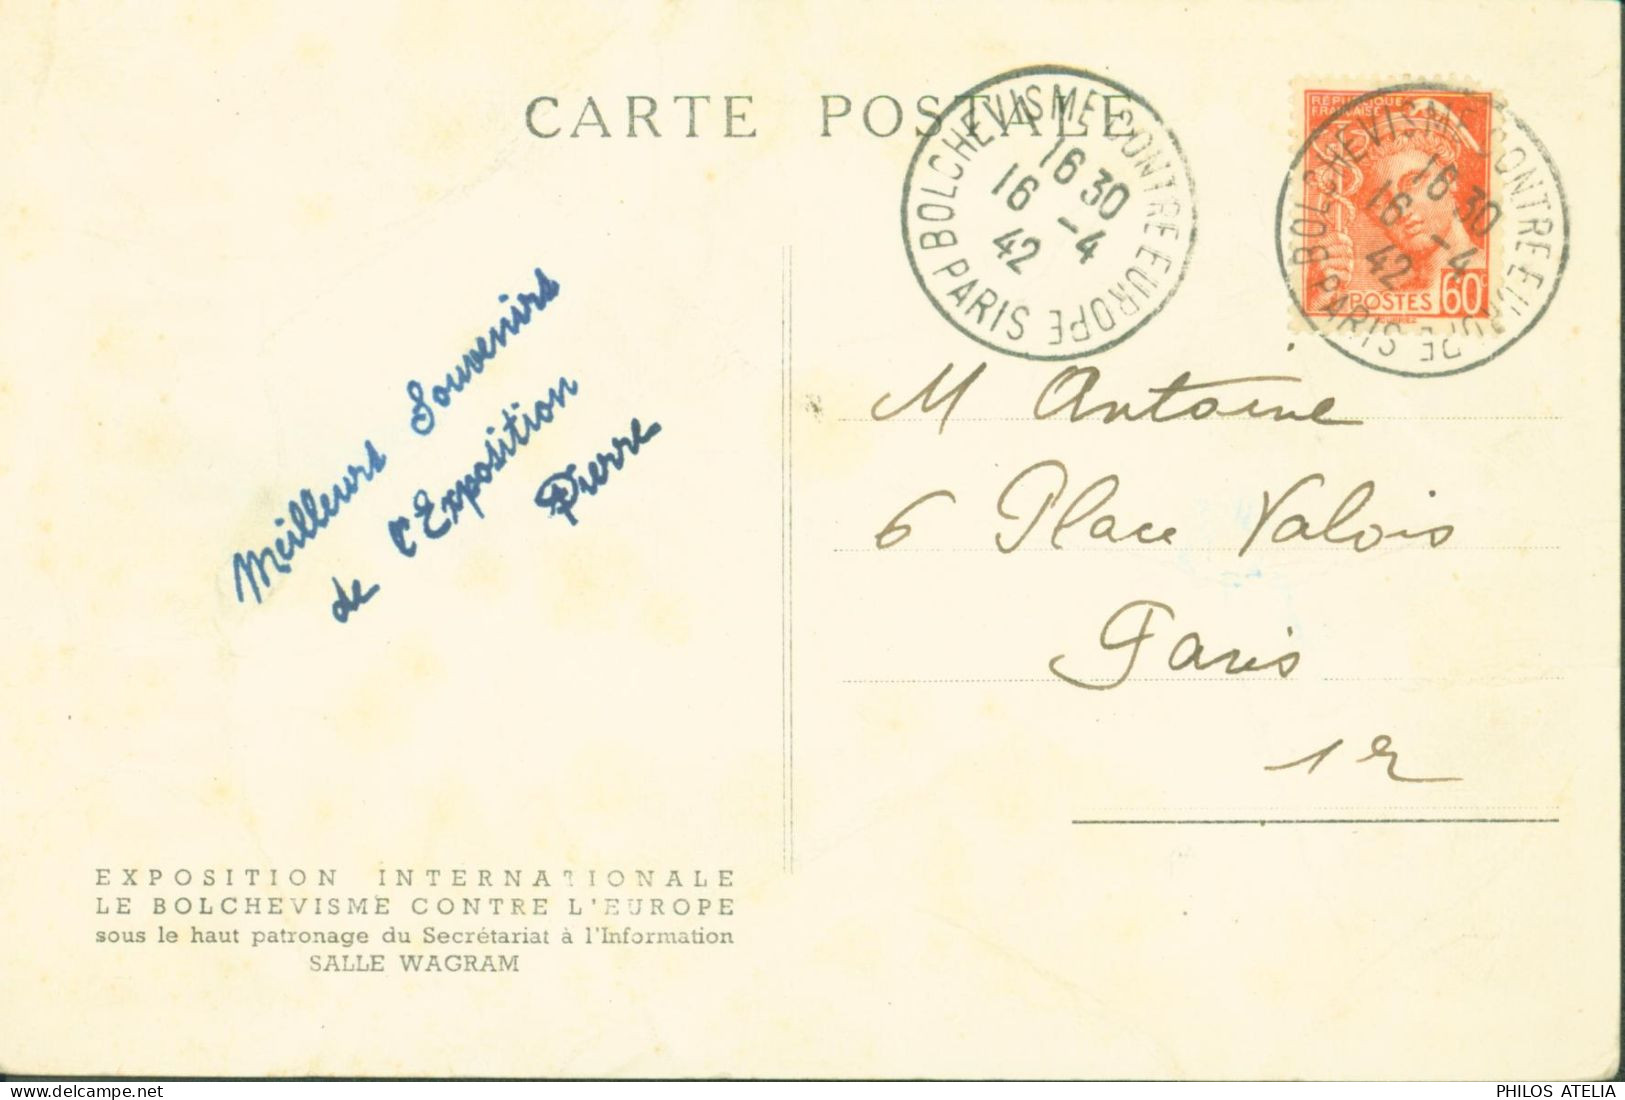 CARTE POSTALE
BOLCHEVISME CONTRE EUROPE
16 30
16 -4
42
PARIS
RÉPUBLIQUE
FRANÇAISE
POSTES 60c
BOLCHEVISME CONTRE EUROPE
16 30
16 -4
42
PARIS
Meilleurs Souvenirs
de l'Exposition
Pierre
M Antoine
6 Place Valois
Paris
1r
EXPOSITION INTERNATIONALE
LE BOLCHEVISME CONTRE L'EUROPE
sous le haut patronage du Secrétariat à l'Information
SALLE WAGRAM
PHILOS ATELIA